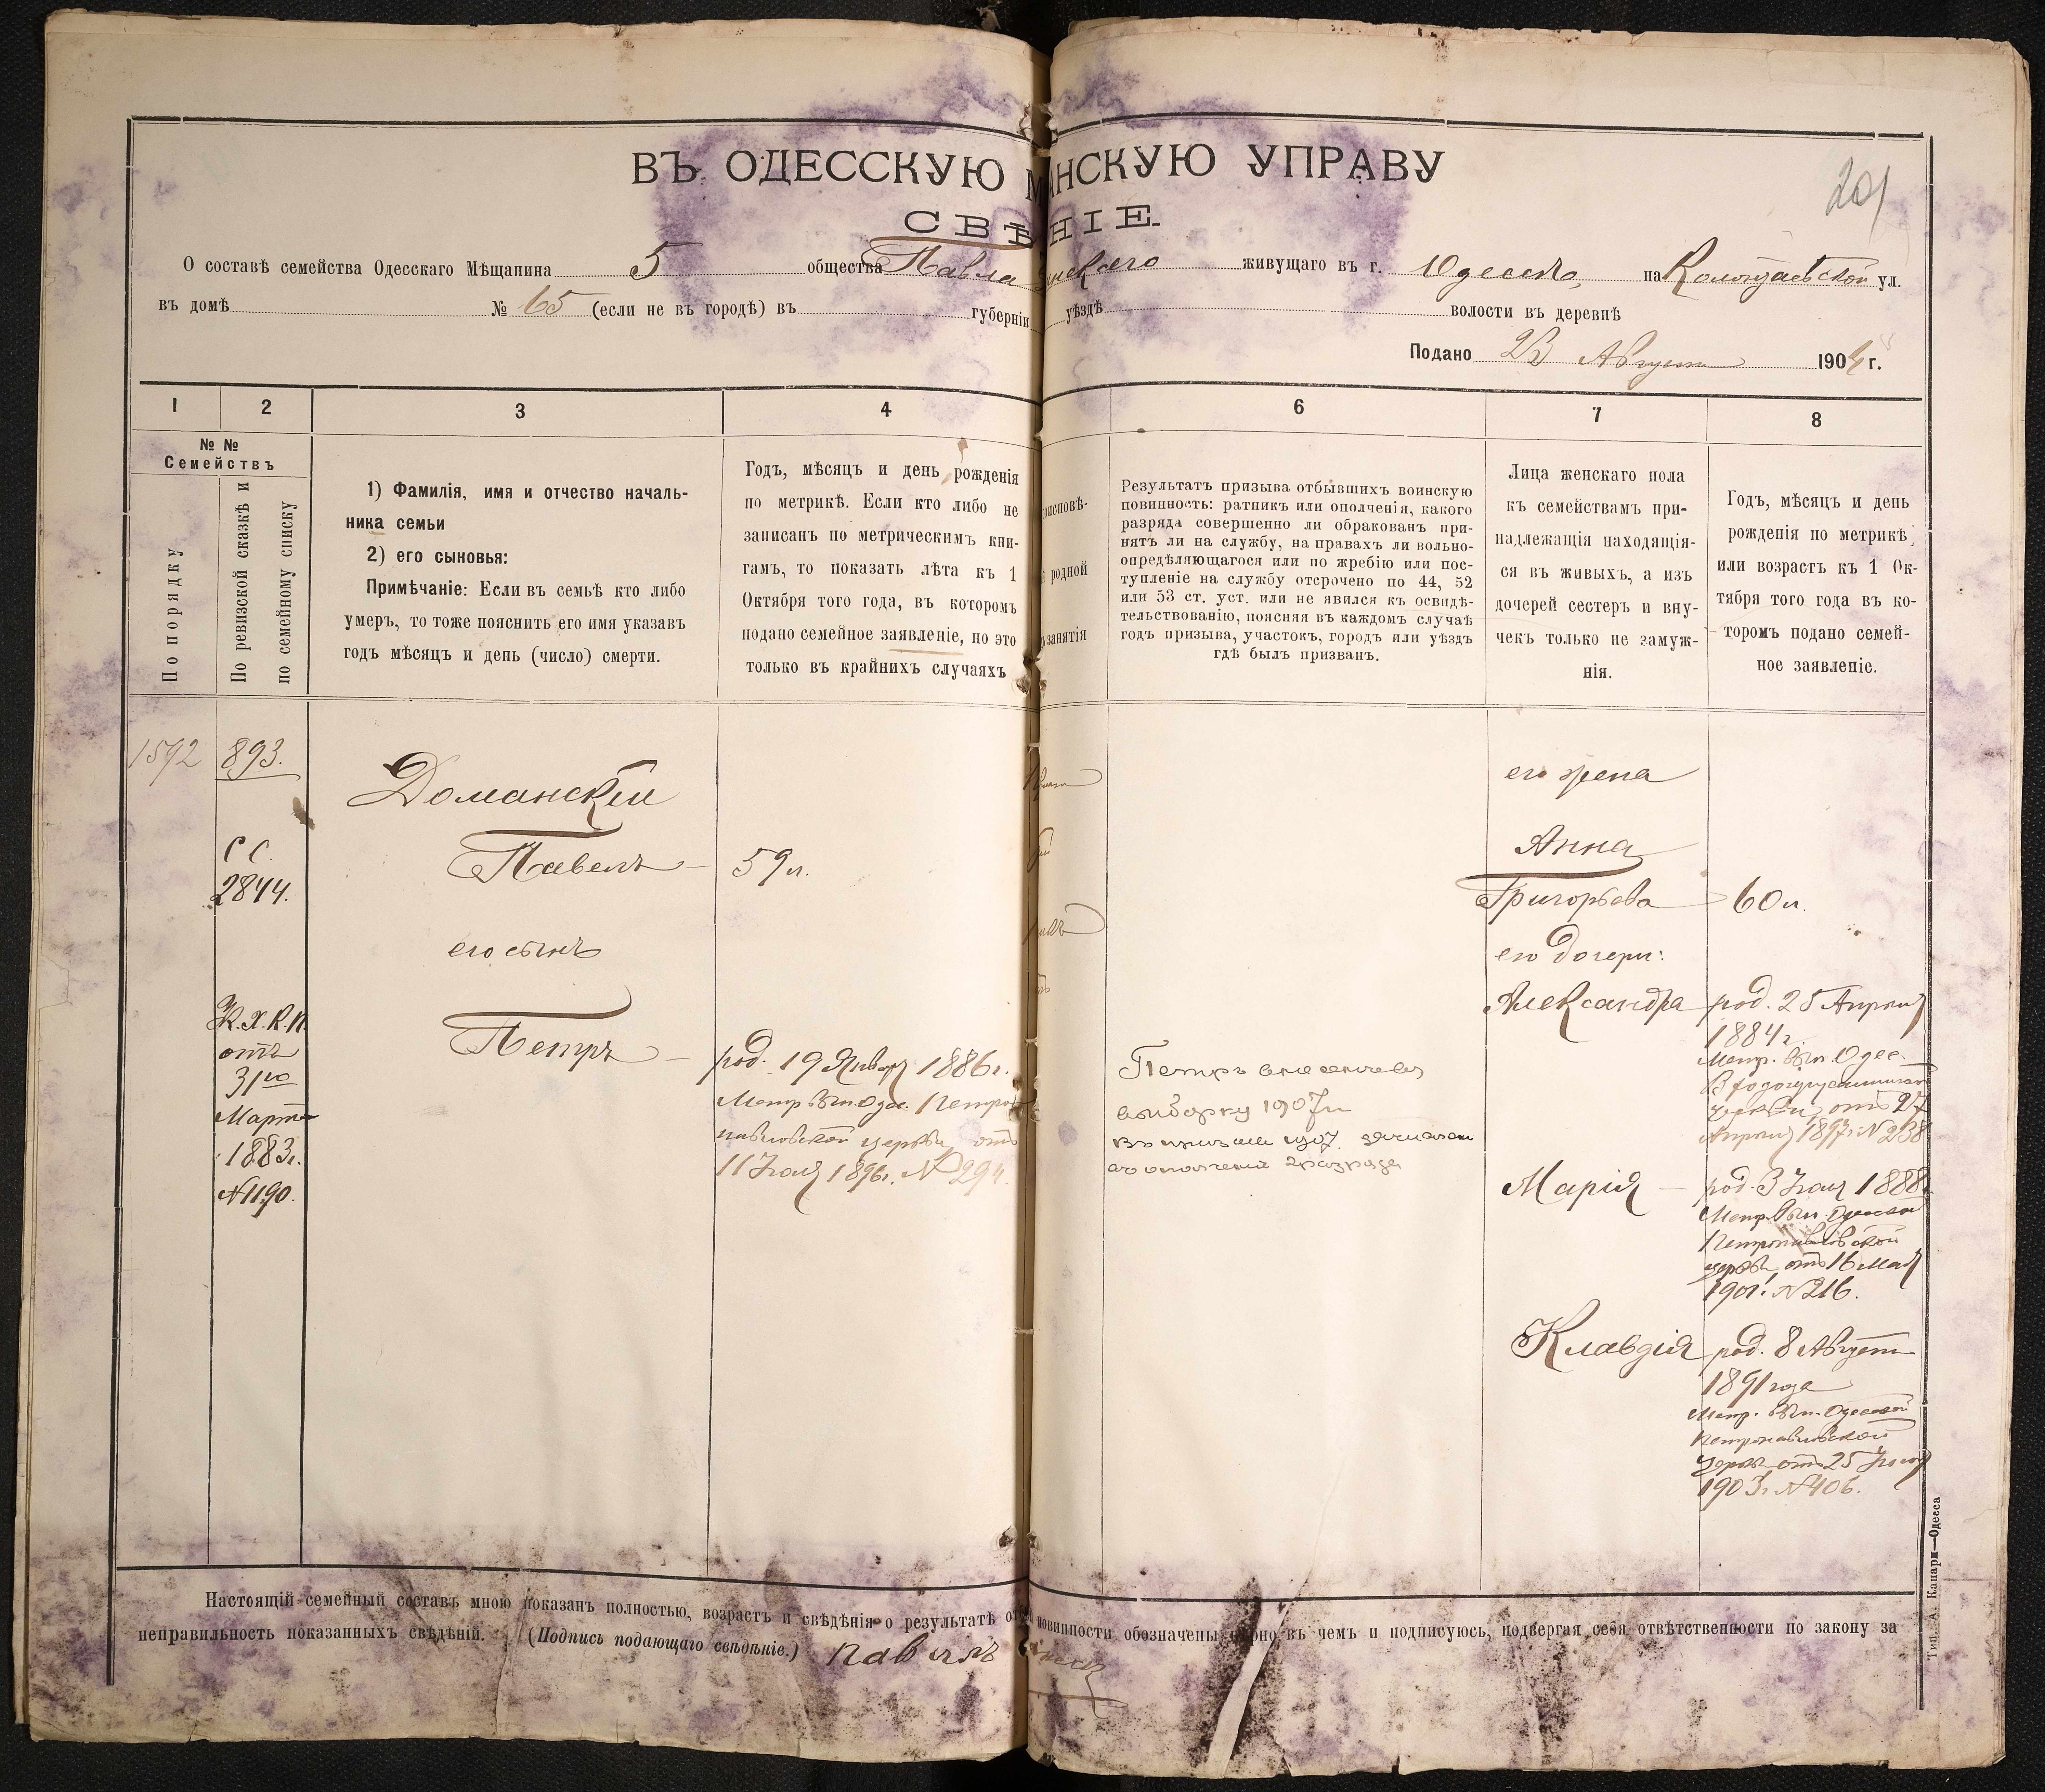 201
ВЪ ОДЕССКУЮ М АНСКУЮ УПРАВУ
СВѢ НІЕ.
О составѣ семейства Одесскаго Мѣщанина 5 общества Павла живущаго въ г. Одессѣ, на ул.
въ домѣ № 65 (если не въ городѣ) въ губерніи уѣздѣ волости въ деревнѣ
Подано 23 Августа 1904 г.
1 2 3 4 6 7 8
№ №
Семействъ
По порядку
По ревизской сказкѣ и
по семейному списку
1) Фамилія, имя и отчество началь-
ника семьи
2) его сыновья:
Примѣчаніе: Если въ семьѣ кто либо
умеръ, то тоже пояснить его имя указавъ
годъ мѣсяцъ и день (число) смерти.
Годъ, мѣсяцъ и день рожденія
по метрикѣ. Если кто либо не
записанъ по метрическимъ кни-
гамъ, то показать лѣта къ 1
Октября того года, въ которомъ
подано семейное заявленіе, но это
только въ крайнихъ случаяхъ
роисповѣ-
й родной
занятія
Результатъ призыва отбывшихъ воинскую
повинность: ратникъ или ополченія, какого
разряда совершенно ли обракованъ при-
нятъ ли на службу, на правахъ ли вольно-
опредѣляющагося или по жребію или пос-
тупленіе на службу отсрочено по 44, 52
или 53 ст. уст. или не явился къ освидѣ-
тельствованію, поясняя въ каждомъ случаѣ
годъ призыва, участокъ, городъ или уѣздъ
гдѣ былъ призванъ.
Лица женскаго пола
къ семействамъ при-
надлежащія находящія-
ся въ живыхъ, а изъ
дочерей сестеръ и вну-
чекъ только не замуж-
нія.
Годъ, мѣсяцъ и день
рожденія по метрикѣ
или возрастъ къ 1 Ок-
тября того года въ ко-
торомъ подано семей-
ное заявленіе.
1592
893.
С С.
2844.
К.Х.К.П.
отъ
3го
Марта
1883г.
№1190.
Доманскій
Павелъ 59 л.
его сынъ
Петръ
род. 19 Января 1886г.
Метр. вып. Одес. Петро
павловской церкви отъ
11 Іюля 1896г. № 294.
Петръ внесенъ
выборку 1907г
въ 1907 зачисленъ
въ ополченіе 2 разряда
его жена
Анна
Григорьева 60 л.
его дочери:
Александра
род. 25 Апрѣля
1884г.
Метр. вып. Одес.
церкви отъ 27
Апрѣля 1897г. №238
Марія
род. 3 Іюля 1888г.
Метр. вып. Одесской
Петропавловской
церкви отъ 16 Мая
1901г. №216.
Клавдія
род. 8 Августа
1891 года
Метр. вып. Одесской
Петропавловской
церкви отъ 25 Іюля
1903г. №406.
Настоящій семейный составъ мною показанъ полностью, возрастъ и свѣдѣнія о результатѣ от повинности обозначены вѣрно, въ чемъ и подписуюсь, подвергая себя отвѣтственности по закону за
неправильность показанныхъ свѣдѣній. (Подпись подающаго свѣдѣніе.) Павилъ
Тип. А. Канари—Одесса